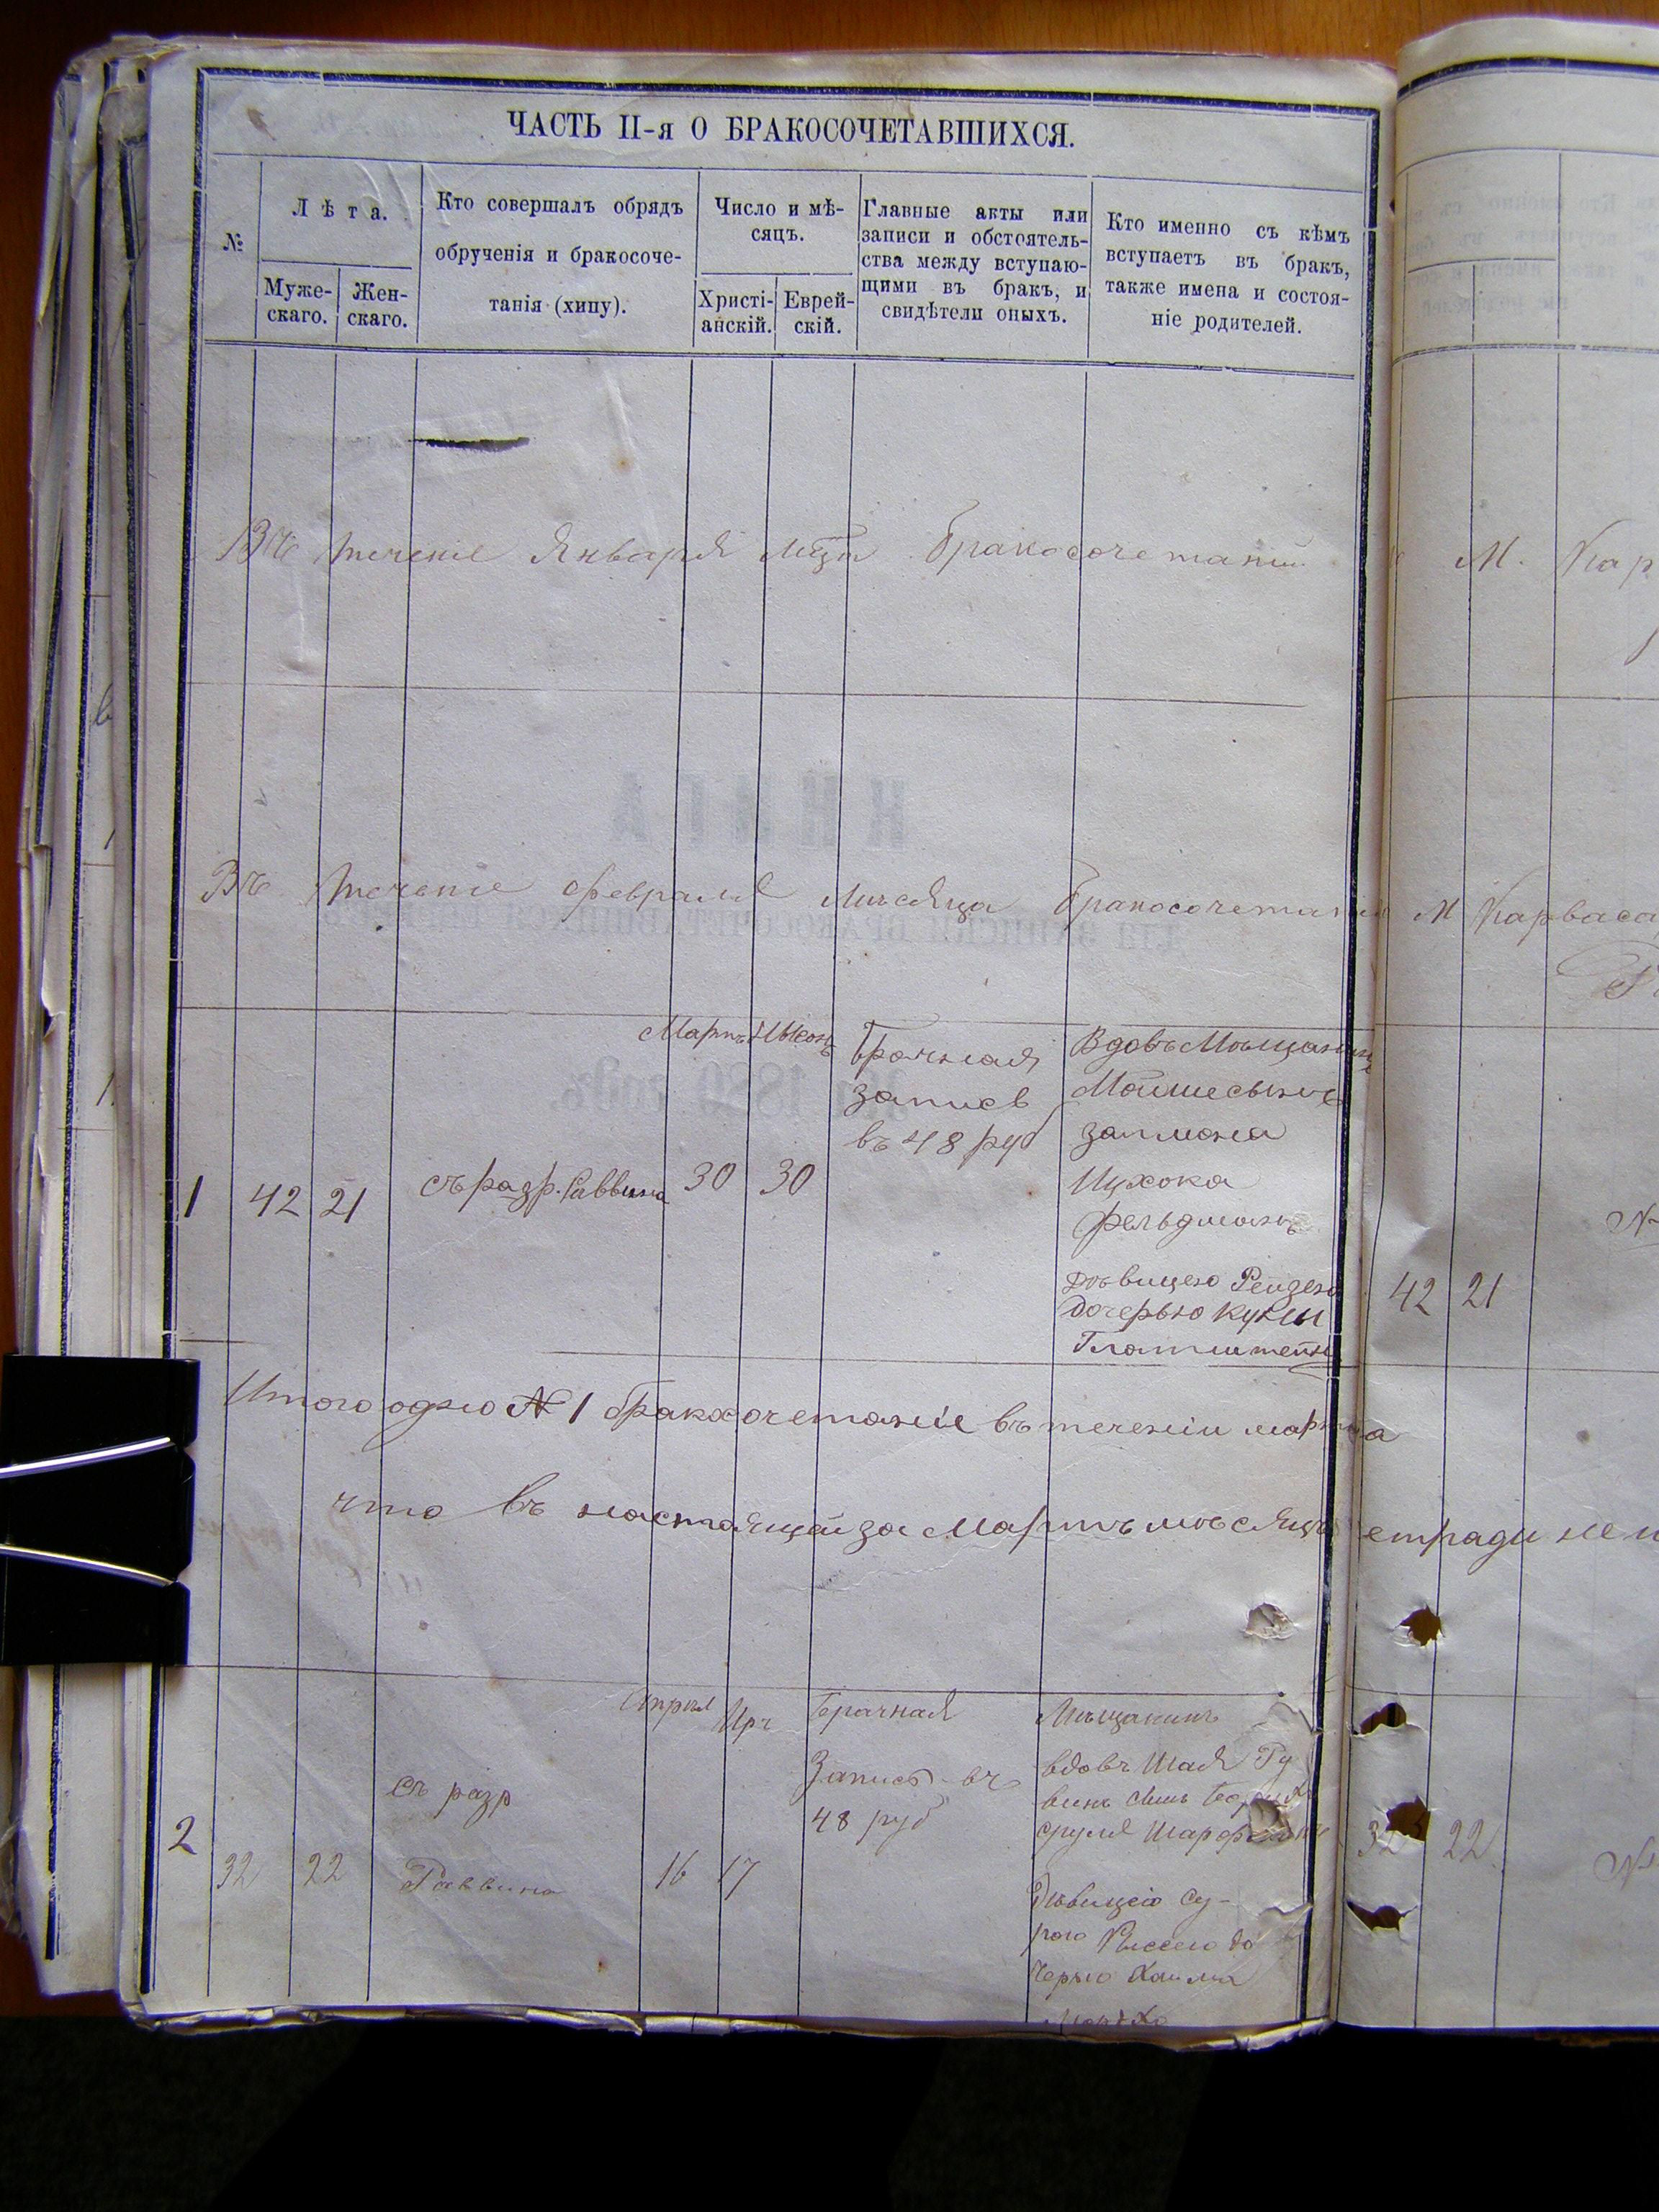 ЧАСТЬ II-я О БРАКОСОЧЕТАВШИХСЯ.
№
Лѣта.
Муже-
скаго.
Жен-
скаго.
Кто совершалъ обрядъ
обрученія и бракосоче-
танія (хипу).
Число и мѣ-
сяцъ.
Христі-
анскій.
Еврей-
скій.
Главные акты или
записи и обстоятель-
ства между вступаю-
щими въ бракъ, и
свидѣтели оныхъ.
Кто именно съ кѣмъ
вступаетъ въ бракъ,
также имена и состоя-
ніе родителей.
Въ теченіе Января мца бракосочетаній
М. Кар
Въ теченіе февраля мѣсяца бракосочетаній М Карваса
1
42
21
съ разр. Раввина
Мартъ
30
30
Брачная
запись
въ 48 руб
Вдовъ Мѣщанинъ
Мошме сынъ
залмона
Ицхока
фельдманъ
дѣвицею Рейзею
дочерью
42 21
Итого одно № 1 бракосочетаніе въ теченіи марта
что въ настоящей за Мартъ мѣсяцъ етради не
2
32
22
съ разр
Раввина
Апрѣл
16
Иръ
17
Брачная
Запись въ
48 руб
Мѣщанинъ
вдовъ Шая Ру
винъ сынъ
сруля
Дѣвицею Су-
рою до
черью Хаима
22